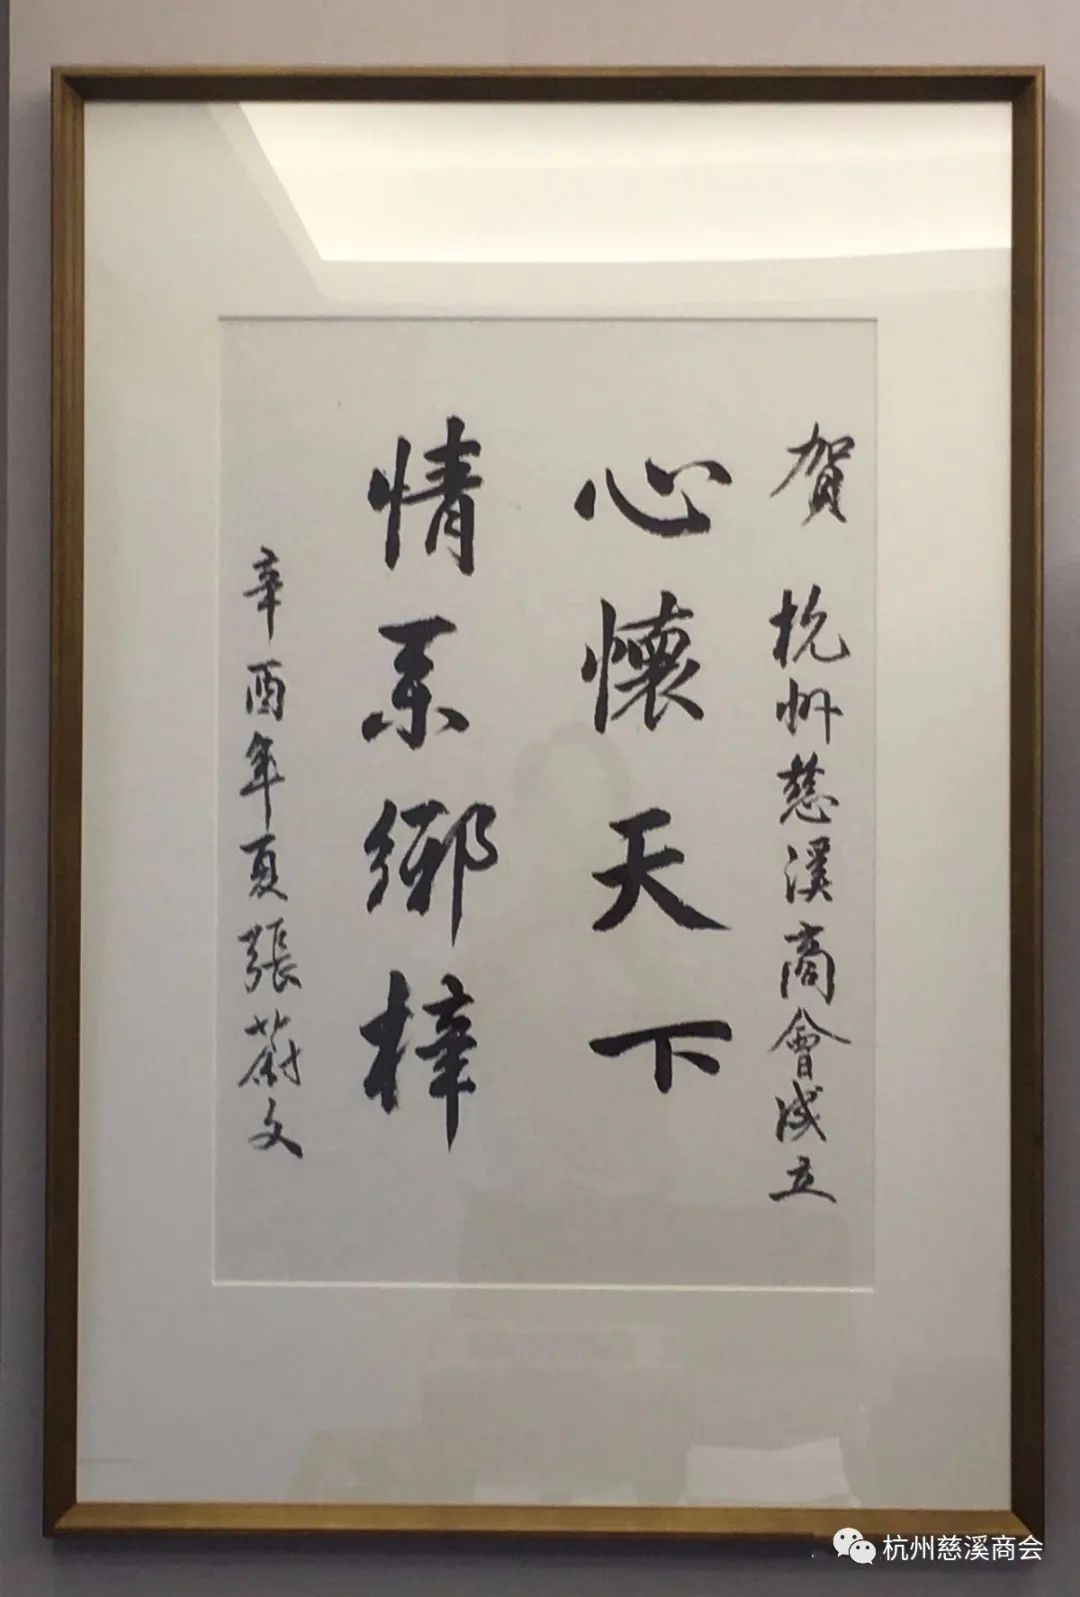 賀 杭州慈溪商會成立
心懷天下
情系鄉梓
辛酉年夏張蔚文
杭州慈溪商会